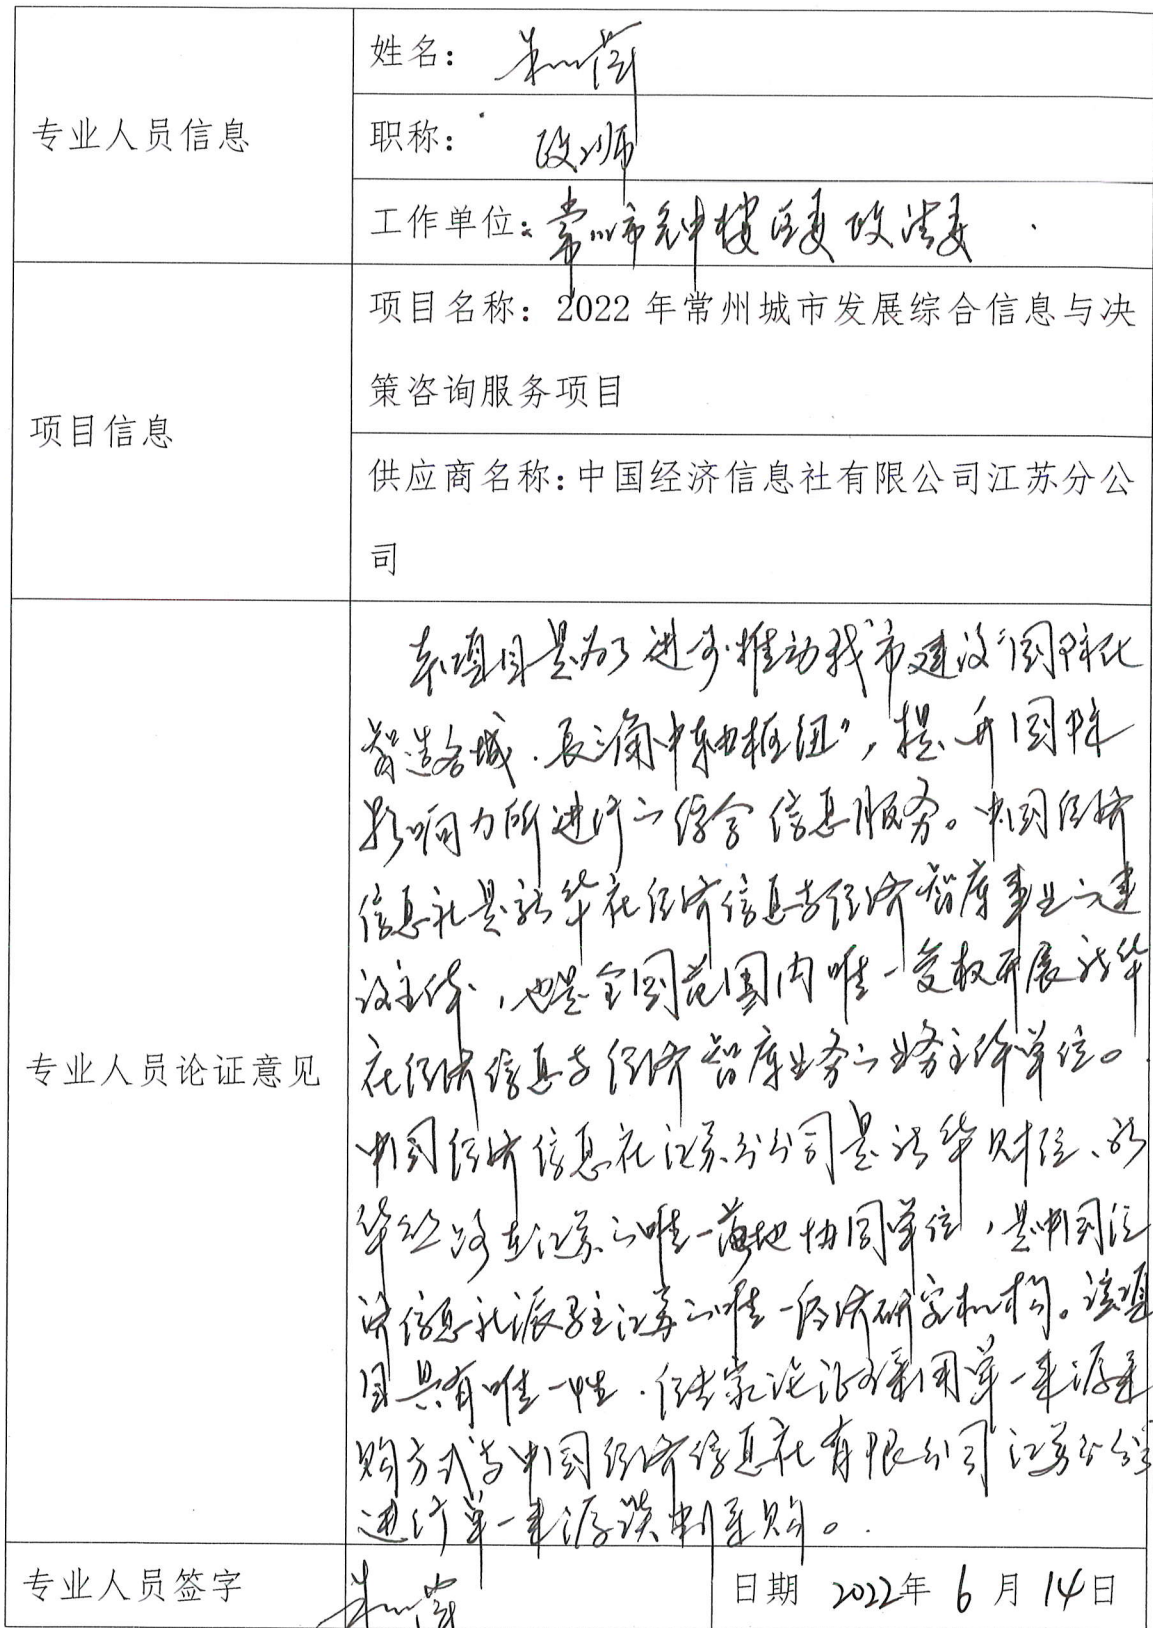 专业人员信息
姓名：
职称： 政工师
工作单位：常州市钟楼区委政法委
项目信息
项目名称：2022 年常州城市发展综合信息与决
策咨询服务项目
供应商名称：中国经济信息社有限公司江苏分公
司
专业人员论证意见
本项目是为了进一步推动我市建设“国际化
智造名城、长三角中轴枢纽”，提升国际
影响力所进行的综合信息服务。中国经济
信息社是新华社经济信息与经济智库事业的建
设主体，也是全国范围内唯一受权开展新华
社经济信息与经济智库业务的业务主体单位。
中国经济信息社江苏分公司是新华财经、新
华丝路在江苏的唯一落地协同单位，是中国经
济信息社派驻江苏的唯一经济研究机构。该项
目具有唯一性，经专家论证采用单一来源采
购方式与中国经济信息社有限公司江苏分公司
进行单一来源谈判采购。
专业人员签字
日期 2022年 6 月 14日